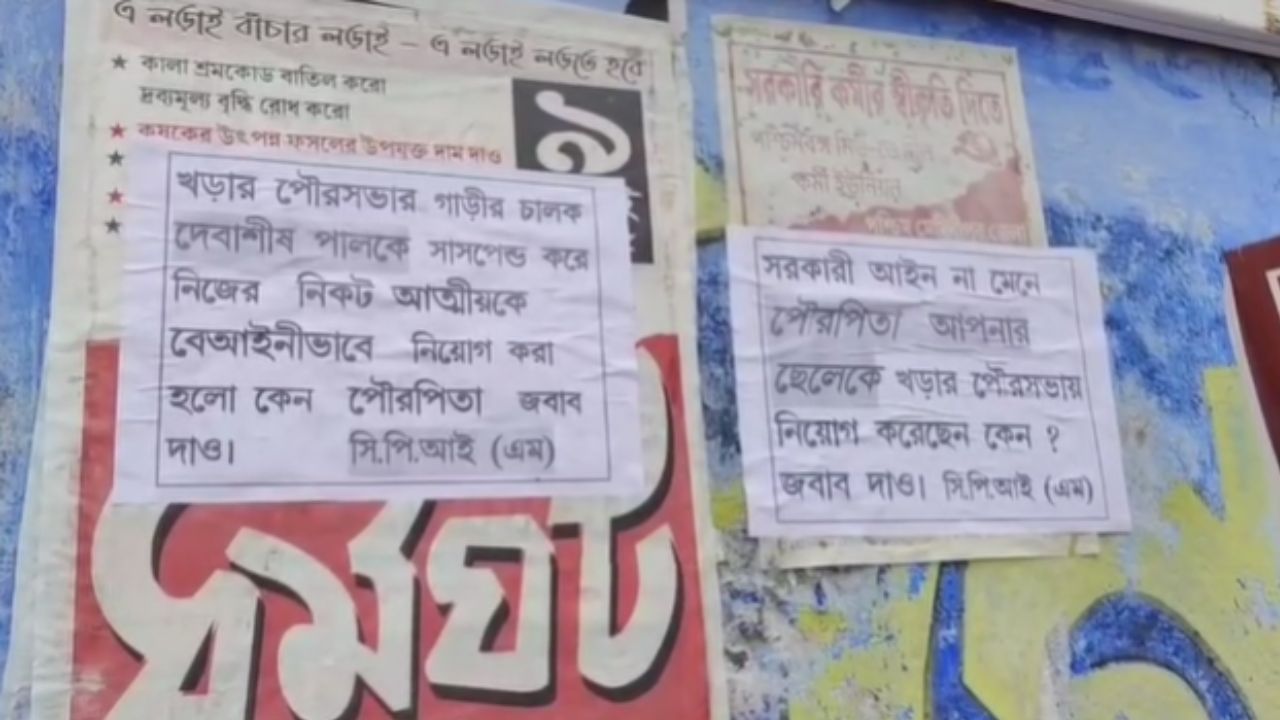 এ লড়াই বাঁচার লড়াই – এ লড়াই লড়তে হবে
★ কালা শ্রমকোড বাতিল করো
দ্রব্যমূল্য বৃদ্ধি রোধ করো
★ কৃষকের উৎপন্ন ফসলের উপযুক্ত দাম দাও
৯
খড়ার পৌরসভার গাড়ীর চালক
দেবাশীষ পালকে সাসপেন্ড করে
নিজের নিকট আত্মীয়কে
বেআইনীভাবে নিয়োগ করা
হলো কেন পৌরপিতা জবাব
দাও। সি.পি.আই (এম)
ধর্মঘট
সরকারি কর্মীর স্বীকৃতি দিতে
পশ্চিমবঙ্গ
কর্মী ইউনিয়ন
সরকারী আইন না মেনে
পৌরপিতা আপনার
ছেলেকে খড়ার পৌরসভায়
নিয়োগ করেছেন কেন ?
জবাব দাও। সি.পি.আই (এম)